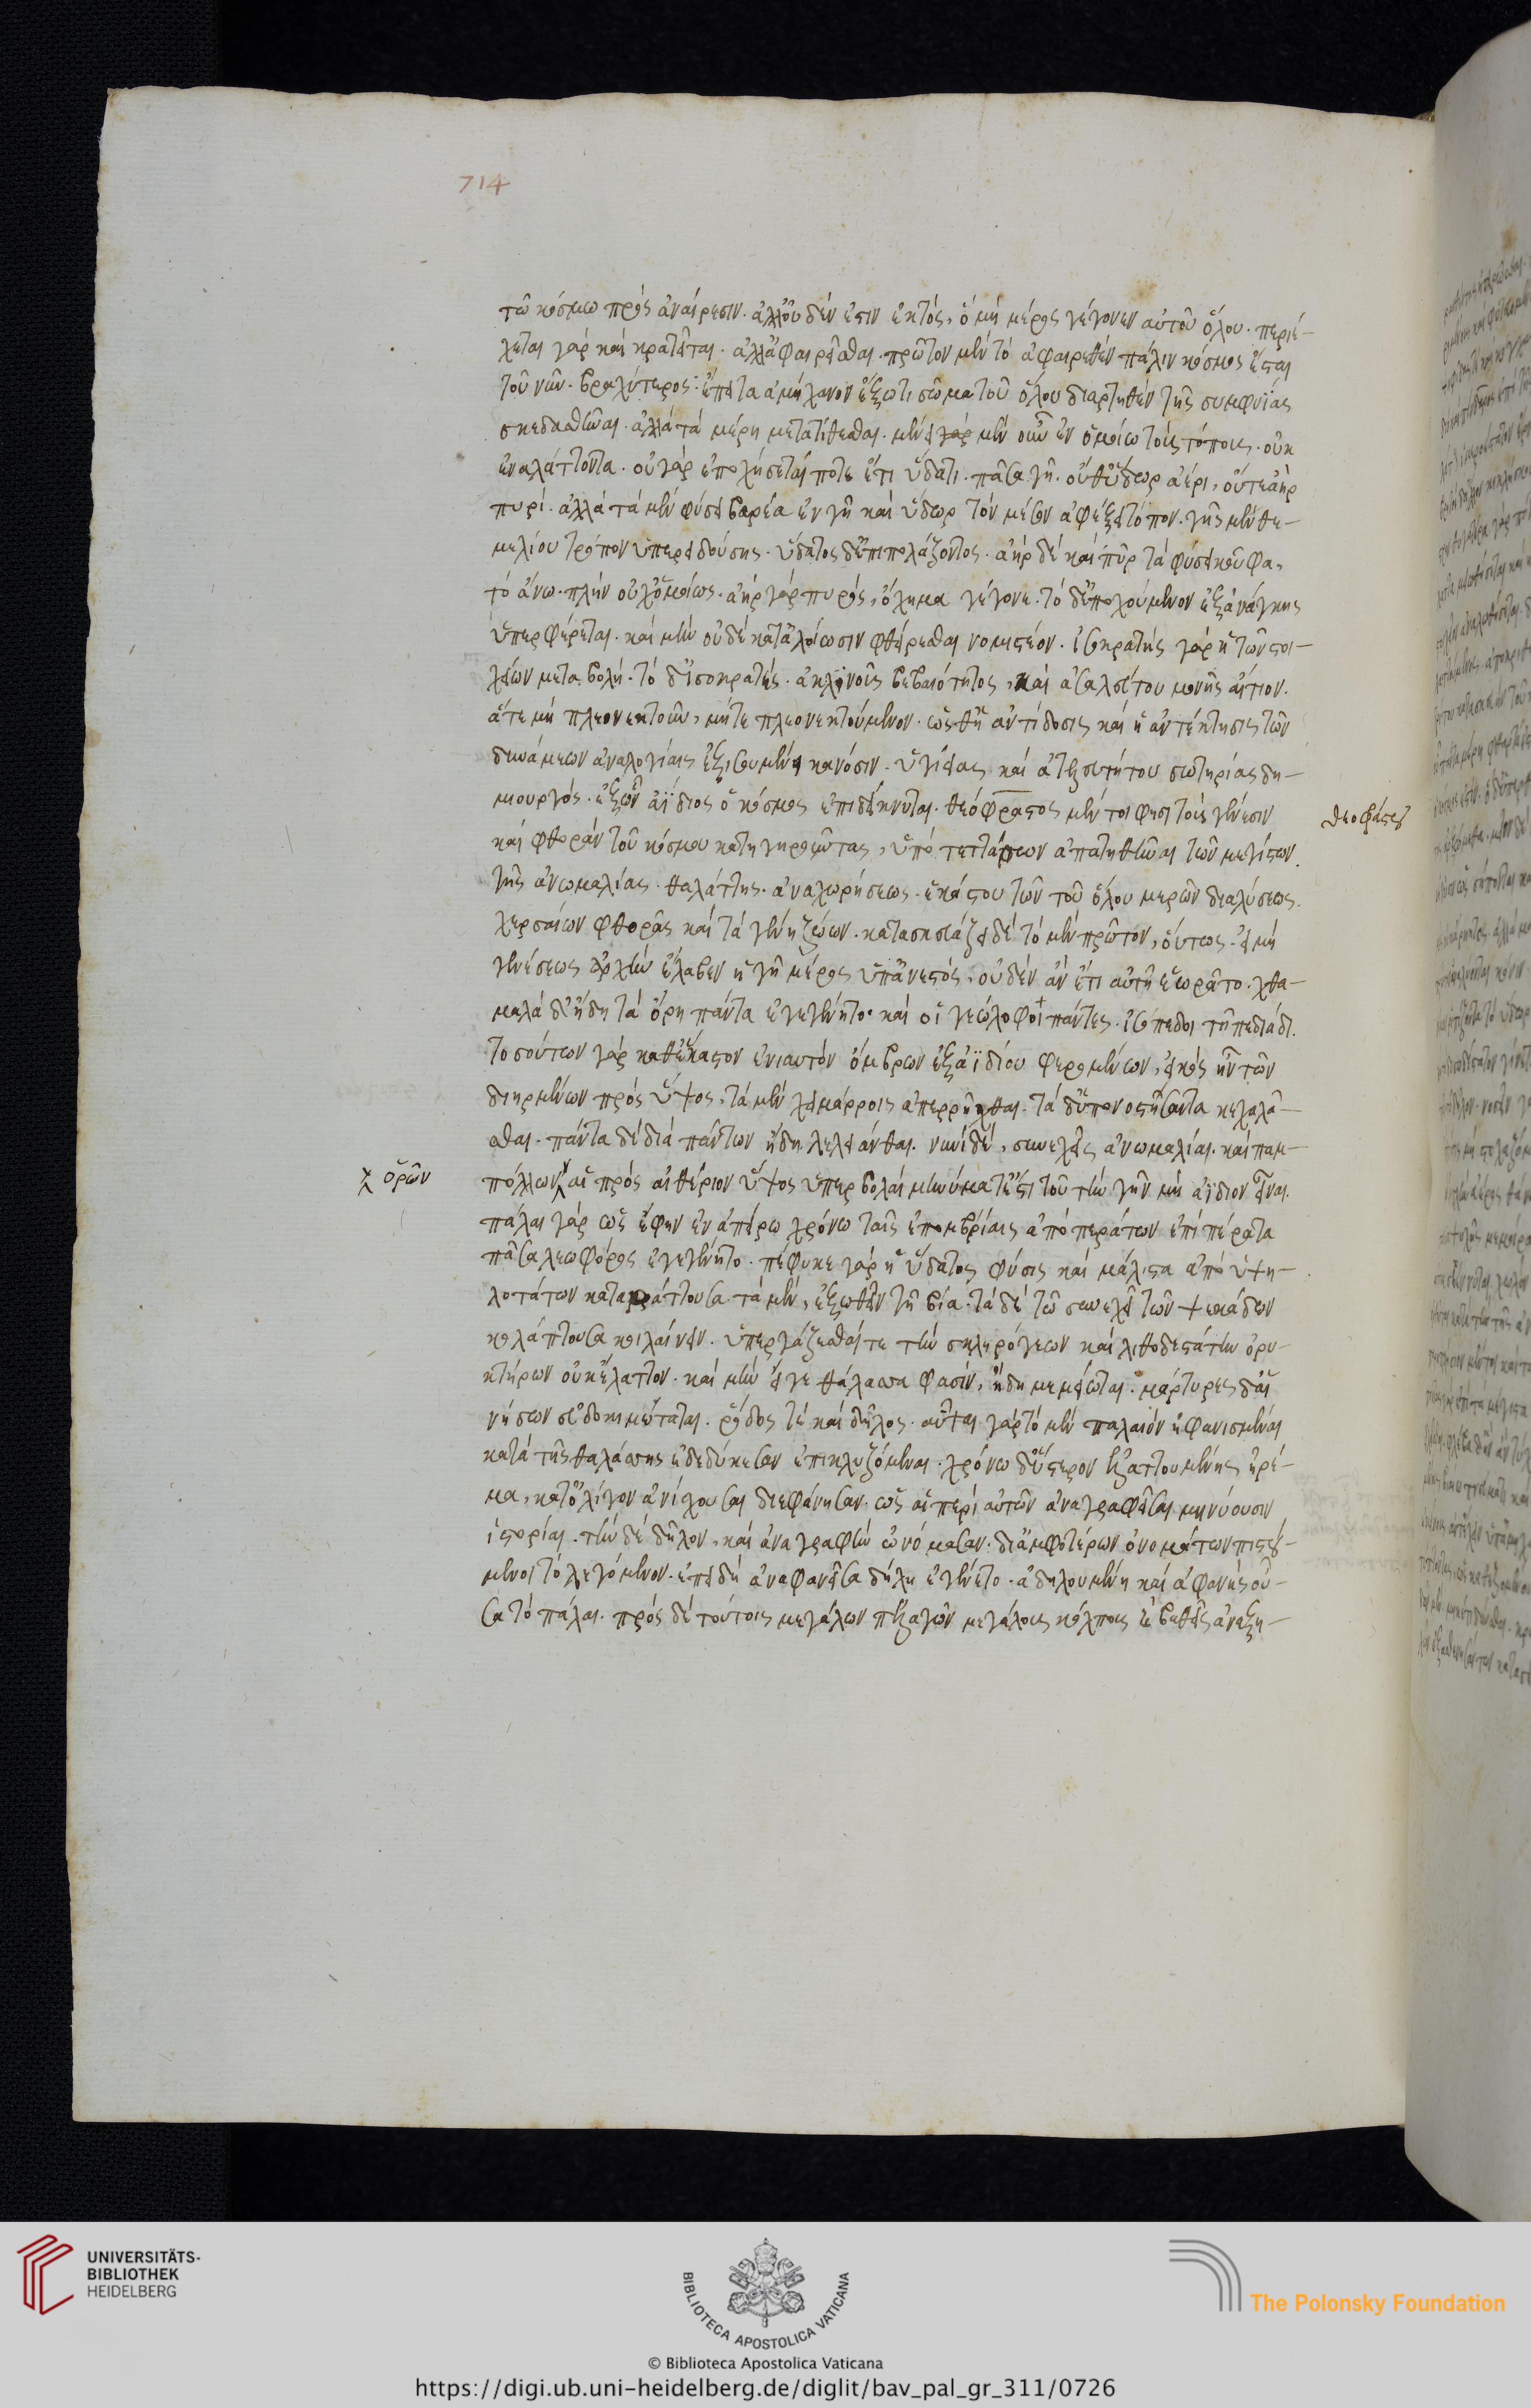 714
τῶ κόσμω πρὸς ἀναίρεσιν. ἀλλ' οὐδέν ἐστιν ἐκτός, ὃ μὴ μέρος γέγονεν αὐτοῦ ὅλου. περιέ-
χεται γὰρ καὶ κρατεῖται. ἀλλ' ἀφαιρεῖσθαι. πρῶτον μὲν τὸ ἀφαιρεθὲν πάλιν κόσμος ἔσται
τοῦ νῦν. βραχύτερος· ἔπειτα ἀμήχανον ἔξω τι σῶμα τοῦ ὅλου διαρτηθὲν τῆς συμφυΐας
σκεδασθῆναι. ἀλλὰ τὰ μέρη μετατίθεσθαι. μένει γὰρ μὲν οὖν ἐν ὁμοίω τοῖς τόποις. οὐκ
ἐναλάττοντα. οὐ γὰρ ἐποχήσεταί ποτε ἔτι ὕδατι. πᾶσα γῆ. οὔθ' ὕδωρ ἀέρι, οὔτε ἀὴρ
πυρί. ἀλλὰ τὰ μὲν φύσει βαρέα ἐν γῆ καὶ ὕδωρ τὸν μέσον ἀφέξει τόπον. γῆς μὲν θε-
μελίου τρόπον ὑπερειδούσης. ὕδατος δ' ἐπιπολάζοντος. ἀὴρ δὲ καὶ πῦρ τὰ φύσει κοῦφα,
τὸ ἄνω. πλὴν οὐχ ὁμοίως. ἀὴρ γὰρ πυρὸς, ὄχημα γέγονε. τὸ δ' ἐποχούμενον ἐξ ἀνάγκης
ὑπερφέρεται. καὶ μὴν οὐδὲ κατ' ἀλοίωσιν φθείρεσθαι νομιστέον. ἰσοκρατὴς γὰρ ἡ τῶν στοι-
χείων μεταβολή. τὸ δ' ἰσοκρατὲς. ἀκλινοῦς βεβαιότητος, καὶ ἀσαλεύτου μονῆς αἴτιον.
ἅτε μὴ πλεονεκτοῦν, μήτε πλεονεκτούμενον. ὥσθ' ἡ ἀντίδοσις καὶ ἡ ἀντέκτησις τῶν
δυνάμεων ἀναλογίαις ἐξισουμένη κανόσιν. ὑγιείας καὶ ἀτελευτήτου σωτηρίας δη-
μιουργός. ἐξ ὧν ἀΐδιος ὁ κόσμος ἐπιδείκνυται. θεόφραστος μέντοι φησὶ τοὺς γένεσιν
καὶ φθορὰν τοῦ κόσμου κατηγοροῦντας, ὑπὸ τεττάρων ἀπατηθῆναι τῶν μεγίστων.
γῆς ἀνωμαλίας. θαλάττης. ἀναχωρήσεως. ἑκάστου τῶν τοῦ ὅλου μερῶν διαλύσεως.
χερσαίων φθορᾶς κατὰ γένη ζώων. κατασκευάζει δὲ τὸ μὲν πρῶτον, οὕτως. εἰ μὴ
γενέσεως ἀρχὴν ἔλαβεν ἡ γῆ μέρος ὑπανεστὸς, οὐδὲν ἂν ἔτι αὐτῆ ἑωρᾶτο. χθα-
μαλὰ δ' ἤδη τὰ ὄρη πάντα ἐγεγένητο. καὶ οἱ γεώλοφοι πάντες. ἰσόπεδοι τῆ πεδιάδι.
τοσούτων γὰρ καθ' ἕκαστον ἐνιαυτὸν ὄμβρων ἐξ ἀϊδίου φερομένων, εἰκὸς ἦν τῶν
διηρμένων πρὸς ὕψος, τὰ μὲν χειμάρροις ἀπερρῆχθαι. τὰ δ' ὑπονοστήσαντα κεχαλᾶ-
σθαι. πάντα δὲ διὰ πάντων ἤδη λελειάνθαι. νυνὶ δέ, συνεχεῖς ἀνωμαλίαι. καὶ παμ-
πόλλων αἱ πρὸς αἰθέριον ὕψος ὑπερβολαὶ μηνύματ' ἔστι τοῦ τὴν γῆν μὴ ἀΐδιον εἶναι.
πάλαι γὰρ ὡς ἔφην ἐν ἀπείρω χρόνω ταῖς ἐπομβρίαις ἀπὸ περάτων ἐπὶ πέρατα
πᾶσα λεωφόρος ἐγεγένητο. πέφυκε γὰρ ἡ ὕδατος φύσις καὶ μάλιστα ἀπὸ ὑψη-
λοτάτων καταράττουσα. τὰ μὲν, ἐξωθεῖν τῆ βία. τὰ δὲ τῶ συνεχεῖ τῶν ψεκάδων
κολάπτουσα κοιλαίνειν. ὑπεργάζεσθαί τε τὴν σκληρόγεων καὶ λιθοδεστάτην ὀρυ-
κτήρων οὐκ ἔλαττον. καὶ μὴν εἴ γε θάλασσα φασὶν, ἤδη μεμείωται. μάρτυρες δ' αἱ
νήσων εὐδοκιμώταται. ῥόδος τὲ καὶ δῆλος. αὗται γὰρ τὸ μὲν παλαιὸν ἠφανισμέναι
κατὰ τῆς θαλάσσης ἐδεδύκεσαν ἐπικλυζόμεναι. χρόνω δ' ὕστερον ἐλαττουμένης ἠρέ-
μα, κατ' ὀλίγον ἀνίσχουσαι διεφάνησαν. ὡς αἱ περὶ αὐτῶν ἀναγραφεῖσαι μηνύουσιν
ἱστορίαι. τὴν δὲ δῆλον, καὶ ἀναγραφὴν ὠνόμασαν. δι' ἀμφοτέρων ὀνομάτων πιστού-
μενοι τὸ λεγόμενον. ἐπειδὴ ἀναφανεῖσα δήλη ἐγένετο. ἀδηλουμένη καὶ ἀφανὴς οὖ-
σα τὸ πάλαι. πρὸς δὲ τούτοις μεγάλων πελαγῶν μεγάλους κόλπους καὶ βαθεῖς ἀναξη-
θεόφραστος
ὀρῶν
UNIVERSITÄTS-
BIBLIOTHEK
HEIDELBERG
BIBLIOTECA APOSTOLICA VATICANA
The Polonsky Foundation
© Biblioteca Apostolica Vaticana
https://digi.ub.uni-heidelberg.de/diglit/bav_pal_gr_311/0726